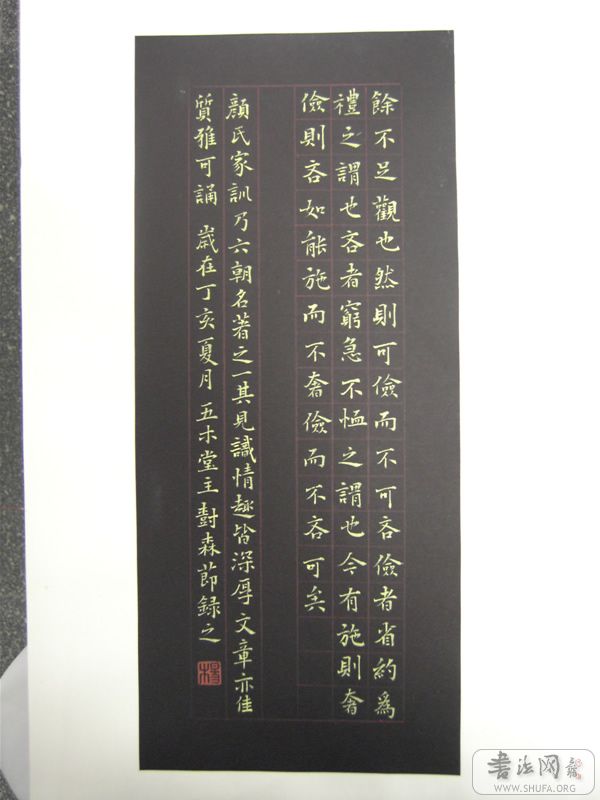 餘不足觀也然則可儉而不可吝儉者省約為
禮之謂也吝者窮急不恤之謂也今有施則奢
儉則吝如能施而不奢儉而不吝可矣
顏氏家訓乃六朝名著之一其見識情趣皆深厚文章亦佳
質雅可誦 歲在丁亥夏月 五木堂主 對森節錄之
書法网
WWW.SHUFA.ORG